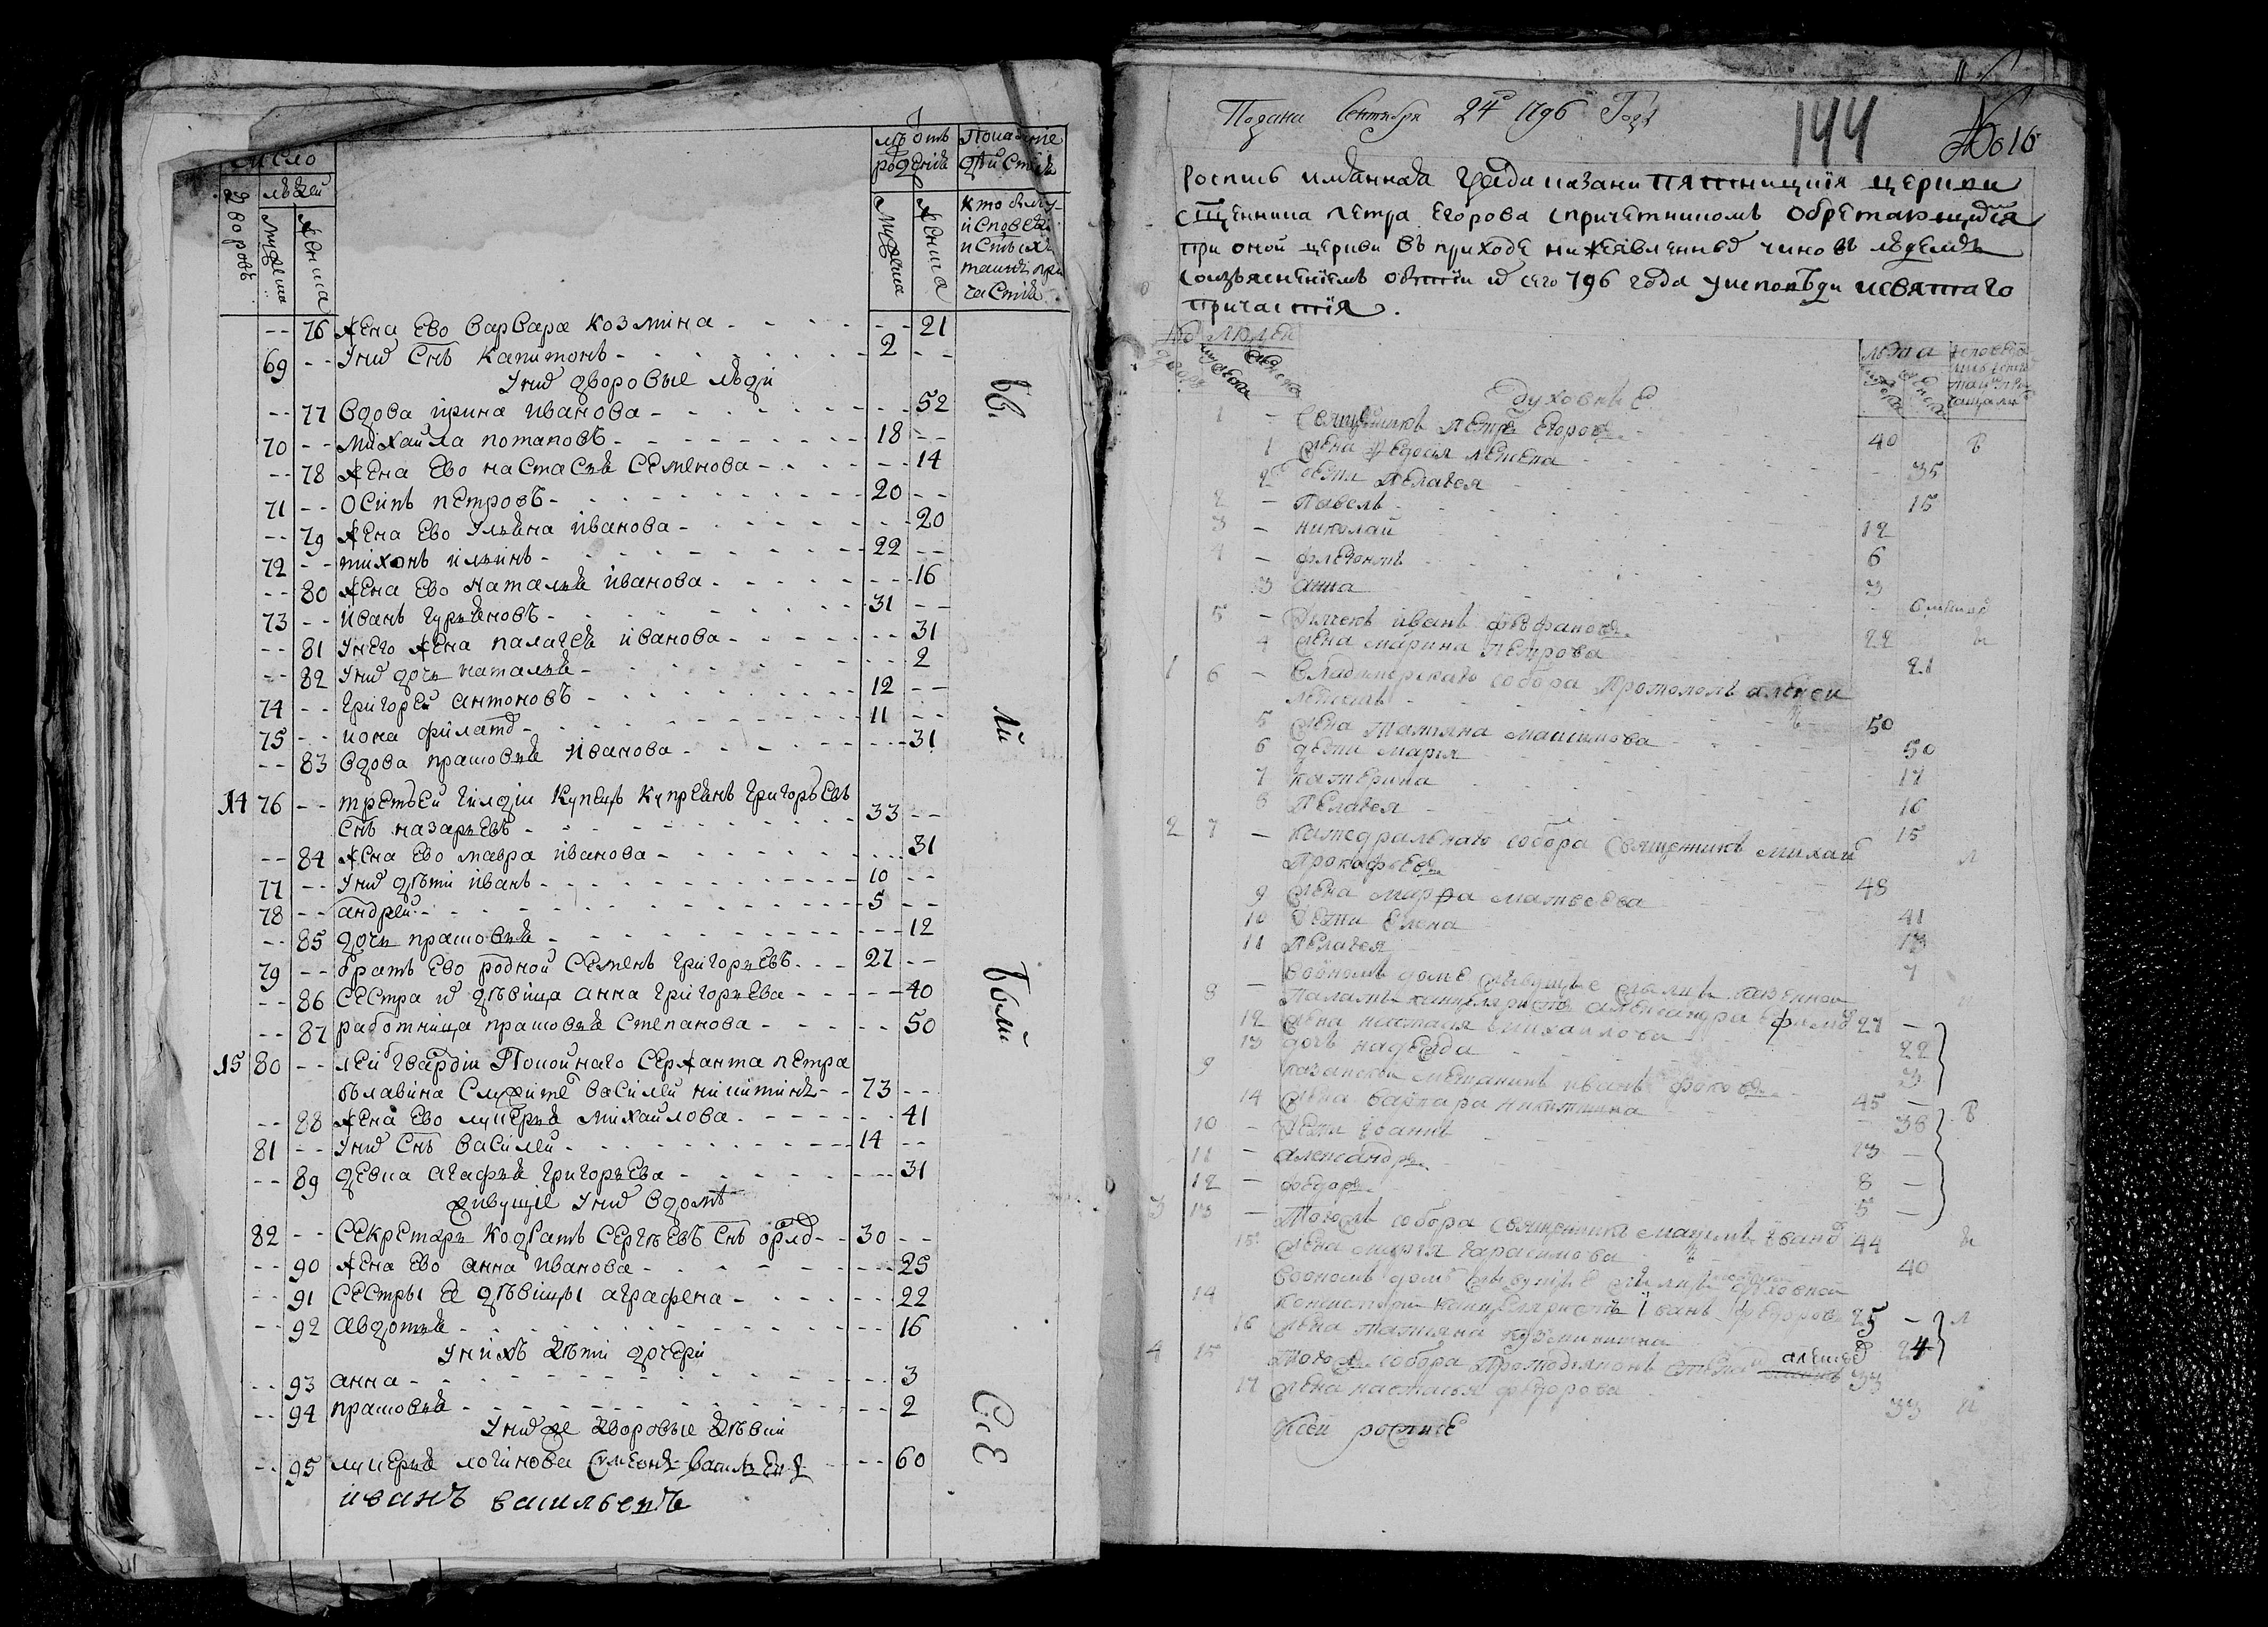 Число
Дворовъ
людей
мужеска
женска
лѣтъ отъ рожденія
мужеска
женска
Показаніе дѣйствія
кто былъ у
исповеди
и святыхъ
таинъ при
частія
-- 76 Жена ево варвара козмина - - 21
69 -- У них снъ капитонъ - 2 --
У них дворовые люди
-- 77 Вдова ирина иванова - - 52
70 -- михаила потаповъ - 18 --
-- 78 Жена ево настасья семенова - - 14
71 -- Осипъ петровъ - 20 --
-- 79 Жена ево ульяна иванова - - 20
72 -- тихонъ ильинъ - 22 --
-- 80 Жена ево наталья иванова - - 16
73 -- иванъ гурьяновъ - 31 --
-- 81 У него жена палагея иванова - - 31
-- 82 У них дочь наталья - - 2
74 -- григорей антоновъ - 12 --
75 -- иона филатов - 11 --
-- 83 Вдова прасковья иванова - - 31
14 76 -- третьей гилдіи купецъ купреянъ григорьевъ
снъ назарьевъ - 33 --
-- 84 Жена ево мавра иванова - - 31
77 -- У них дѣти иванъ - 10 --
78 -- андрей - 5 --
-- 85 дочь прасковья - - 12
79 -- братъ ево родной семенъ григорьевъ - 27 --
-- 86 сестра их дѣвица анна григорьева - - 40
-- 87 работница прасковья степанова - - 50
15 80 -- лейбгвардіи покойнаго сержанта петра
булавина служител василей никитинъ - 73 --
-- 88 Жена ево лукерья михайлова - - 41
81 -- У них снъ василей - 14 --
-- 89 девка агафья григорьева - - 31
живущіе у них вдомѣ
82 -- секретарь кодратъ сергѣевъ снъ орлов - 30 --
-- 90 Жена ево анна иванова - - 25
-- 91 сестры ея дѣвицы аграфена - - 22
-- 92 авдотья - - 16
У нихъ дѣти дочери
-- 93 анна - - 3
-- 94 прасковья - - 2
У них же дворовые дѣвки
-- 95 лукерья логинова - - 60
иванъ васильевъ
бы
ли
Всѣ
Подана Сентября 24го 1796 Года
144
No 16
роспись имянная града казани пятницкія церкви
священника петра егорова спричетникомъ обретающихся
при оной церкви въ приходе нижеявленных чиновъ людемъ
соизъясненіемъ о бытіи их сего 796 года уисповѣди исвятаго
причастія.
людей
лѣта
духовные
1 - Священникъ петръ егоровъ - 40 в
1 жена федосья алексеева - 35
2 дети пелагея - 15
2 - павелъ - 12
3 - николай - 6
4 - флегонтъ - 3
3 анна -
5 - дьячекъ иванъ феофановъ - 22
4 жена марина петрова - 21
1 6 - владимирскаго собора протопопъ алексей
- 50
5 жена татьяна максимова - 50
6 дѣти марья - 17
7 катерина - 16
8 пелагея - 15
2 7 - катедральнаго собора священникъ михаил
прокофьевъ - 48 л
9 жена марфа матвеева - 41
10 дети елена - 13
11 пелагея - 7
воономъ доме живущіе казенной
8 - палаты канцеляристъ александра ефимов 27 -
12 жена настасья михаилова - 22
13 дочь надежда - 3
9 казанской мещанинъ иванъ - 45 -
14 жена варвара никитишна - 36 в
10 - дети иоаннъ - 13 -
11 - александръ - 8 -
12 - федоръ - 5 -
3 13 - тогожъ собора священникъ максимъ иванов 44
15 жена герасимова - 40
воономъ доме живущіе духовной
14 консисторіи канцеляристъ иванъ федоровъ 25 - л
16 жена татьяна кузминишна - 24
4 15 тогожъ собора протодьяконъ алексеев 33
17 жена настасья федорова - 33
Ксей росписе